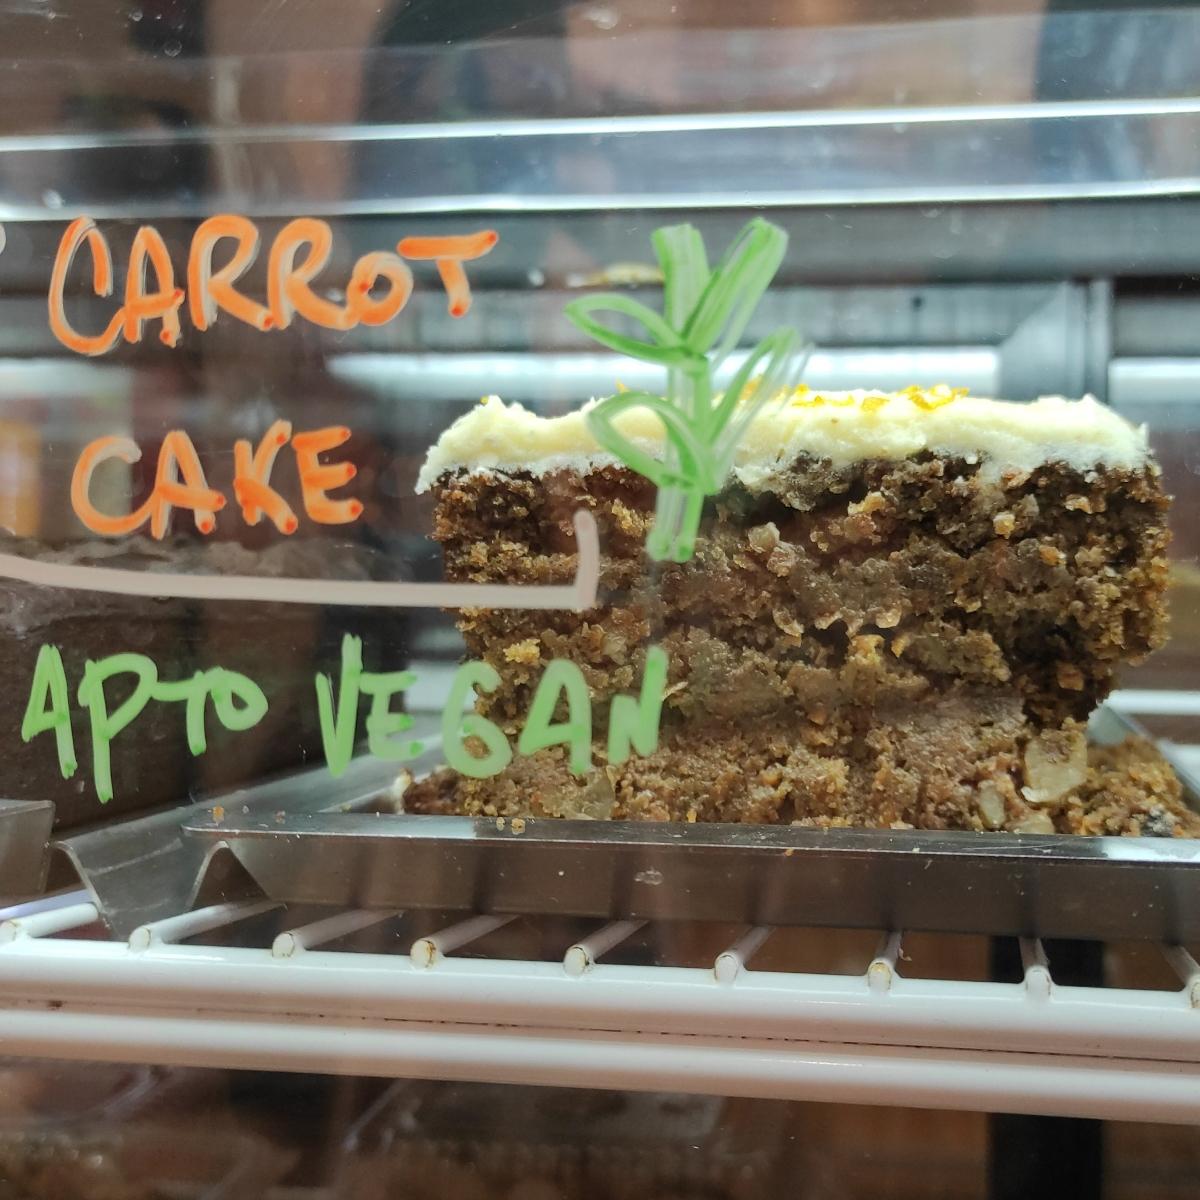 CARROT
CAKE
APTO VEGAN